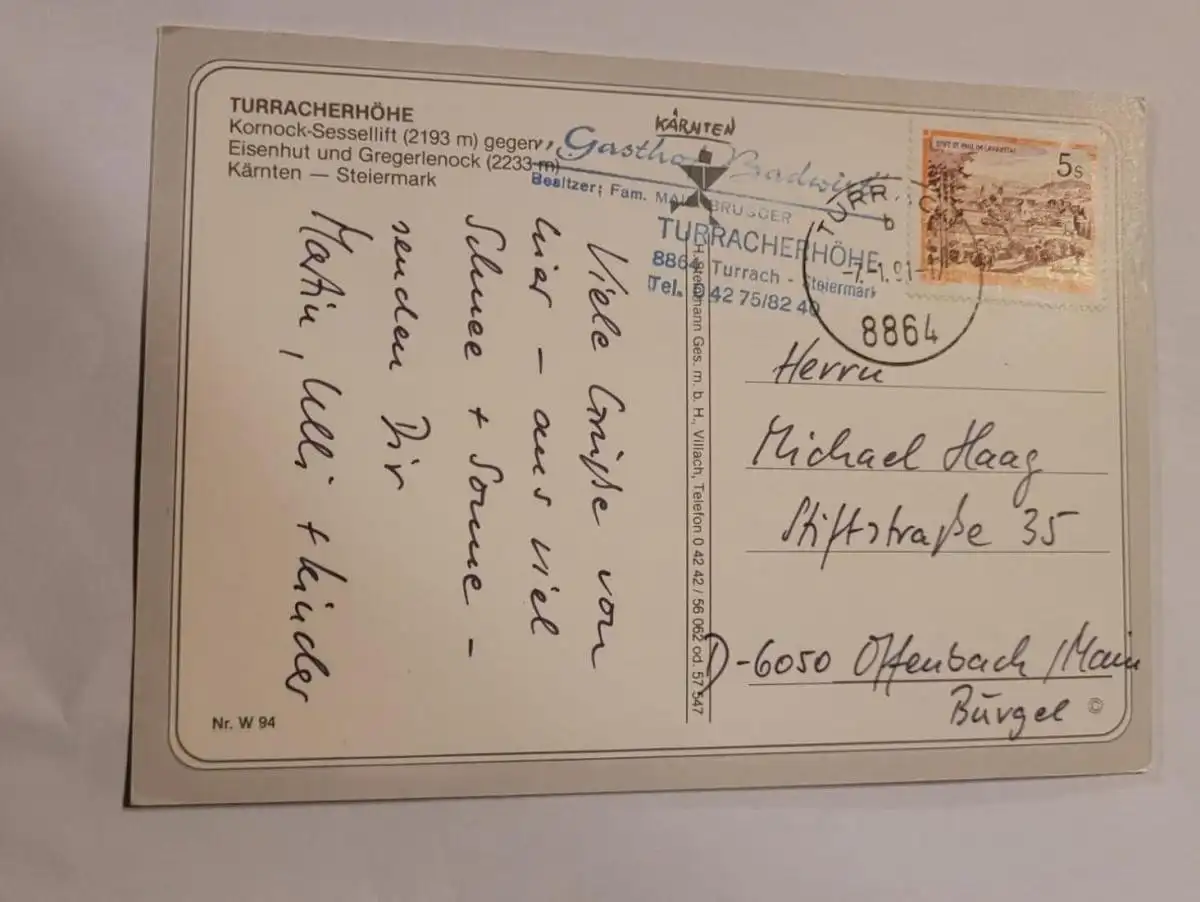 TURRACHERHÖHE
Kornock-Sessellift (2193 m) gegen
Eisenhut und Gregerlenock (2233 m)
Kärnten — Steiermark
KÄRNTEN
Besitzer: Fam.
TURRACHERHÖHE
8864 Turrach - Steiermark
Tel. 0 42 75/82 40
5 S
8864
Viele Grüße von
hier – aus viel
Schnee + Sonne –
senden Dir
Martin, Ulli + Kinder
H. Steinmann Ges. m. b. H., Villach, Telefon 0 42 42 / 56 062 od. 57 547
Herrn
Michael Haag
Stiftstraße 35
D-6050 Offenbach/Main
Bürgel
©
Nr. W 94